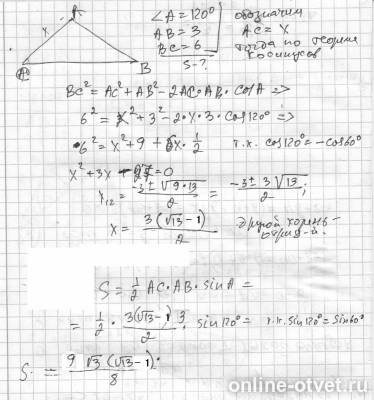 C
x
A
B
∠A = 120°
AB = 3
BC = 6
S - ?
обозначим
AC = X
тогда по теореме
косинусов
BC² = AC² + AB² - 2AC·AB·cosA =>
6² = x² + 3² - 2·x·3·cos120° =>
6² = x² + 9 + 6x·½ т.к. cos120° = -cos60°
x² + 3x - 27 = 0
x₁₂ = (-3 ± √(9·13))/2 = (-3 ± 3√13)/2;
x = 3(√13 - 1)/2 другой корень -
S = ½ AC·AB·sinA =
= ½ · 3(√13 - 1)·3/2 · sin120° = т.к. sin120° = sin60°
S = 9√3(√13 - 1)/8
online-otvet.ru